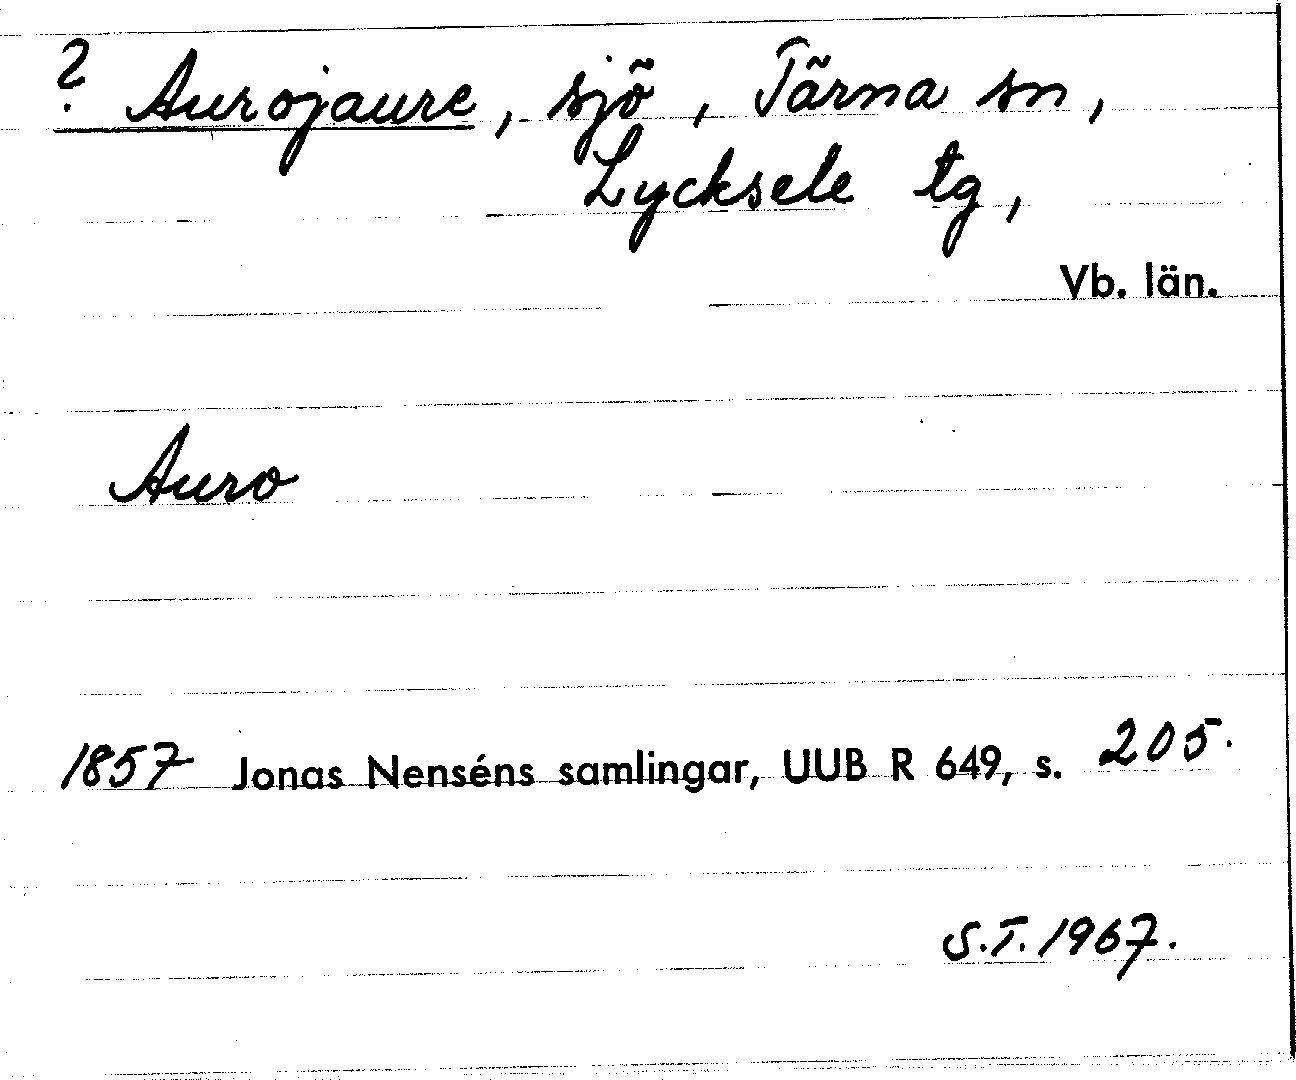 ? Aurojaure, sjö, Tärna sn,
Lycksele tg,
Vb. län.
Auro
1857 Jonas Nenséns samlingar, UUB R 649, s. 205.
S.T. 1967.